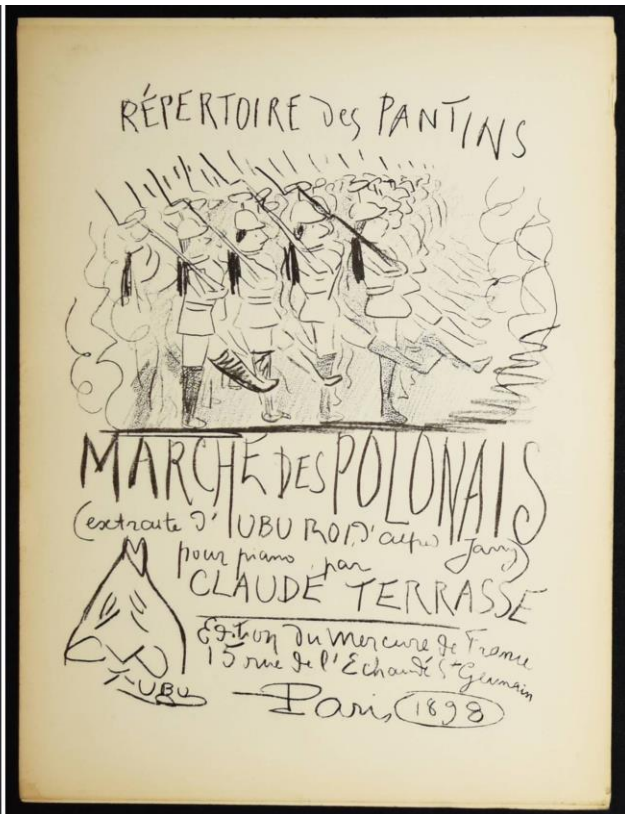 RÉPERTOIRE des PANTINS
MARCHE DES POLONAIS
(extraite d'UBU ROI d'alfred Jarry)
pour piano par
CLAUDE TERRASSE
UBU
Edition du Mercure de France
15 rue de l'Echaudé St Germain
Paris 1898